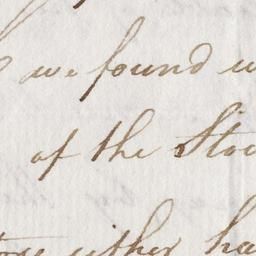 we found
of the Stoc
either ha